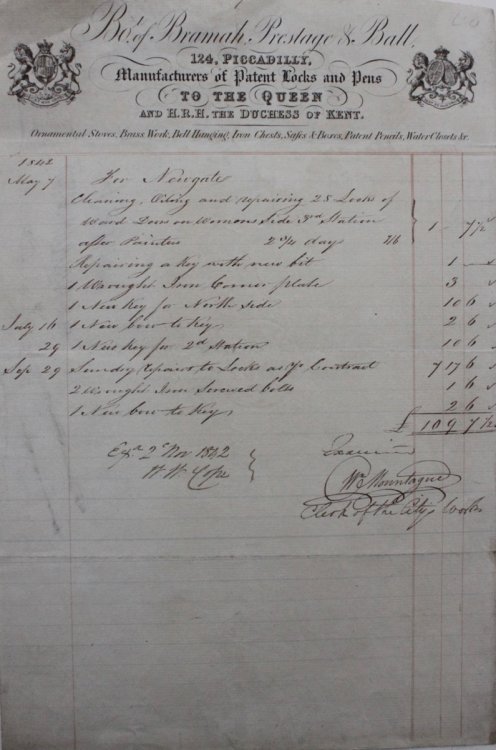 Bot. of Bramah, Prestage & Ball,
124, PICCADILLY,
Manufacturers of Patent Locks and Pens
TO THE QUEEN
AND H.R.H. THE DUCHESS OF KENT.
Ornamental Stoves, Brass Work, Bell Hanging, Iron Chests, Safes & Boxes, Patent Pencils, Water Closets &c.
1842
May 7 For Newgate
Cleaning, Oiling and repairing 28 Locks of
Ward Doors on Womens Side 3rd Station
after Painters 2 3/4 days 7/6 1 - 7 1/2
Repairing a Key with new bit 1 -
1 Wrought Iron Corner plate 3
1 New Key for North side 10 6
July 16 1 New bow to Key 2 6
29 1 New Key for 2d Station 10 6
Sep 29 Sundry repairs to Locks as pr Contract 7 17 6
2 Wrought Iron Screwed bolts 1 6
1 New bow to Key 2 6
£ 10 9 7 1/2
Exd 2 Nov 1842
W W Cope
Examined
Wm Mountague
Clerk of the City's Works